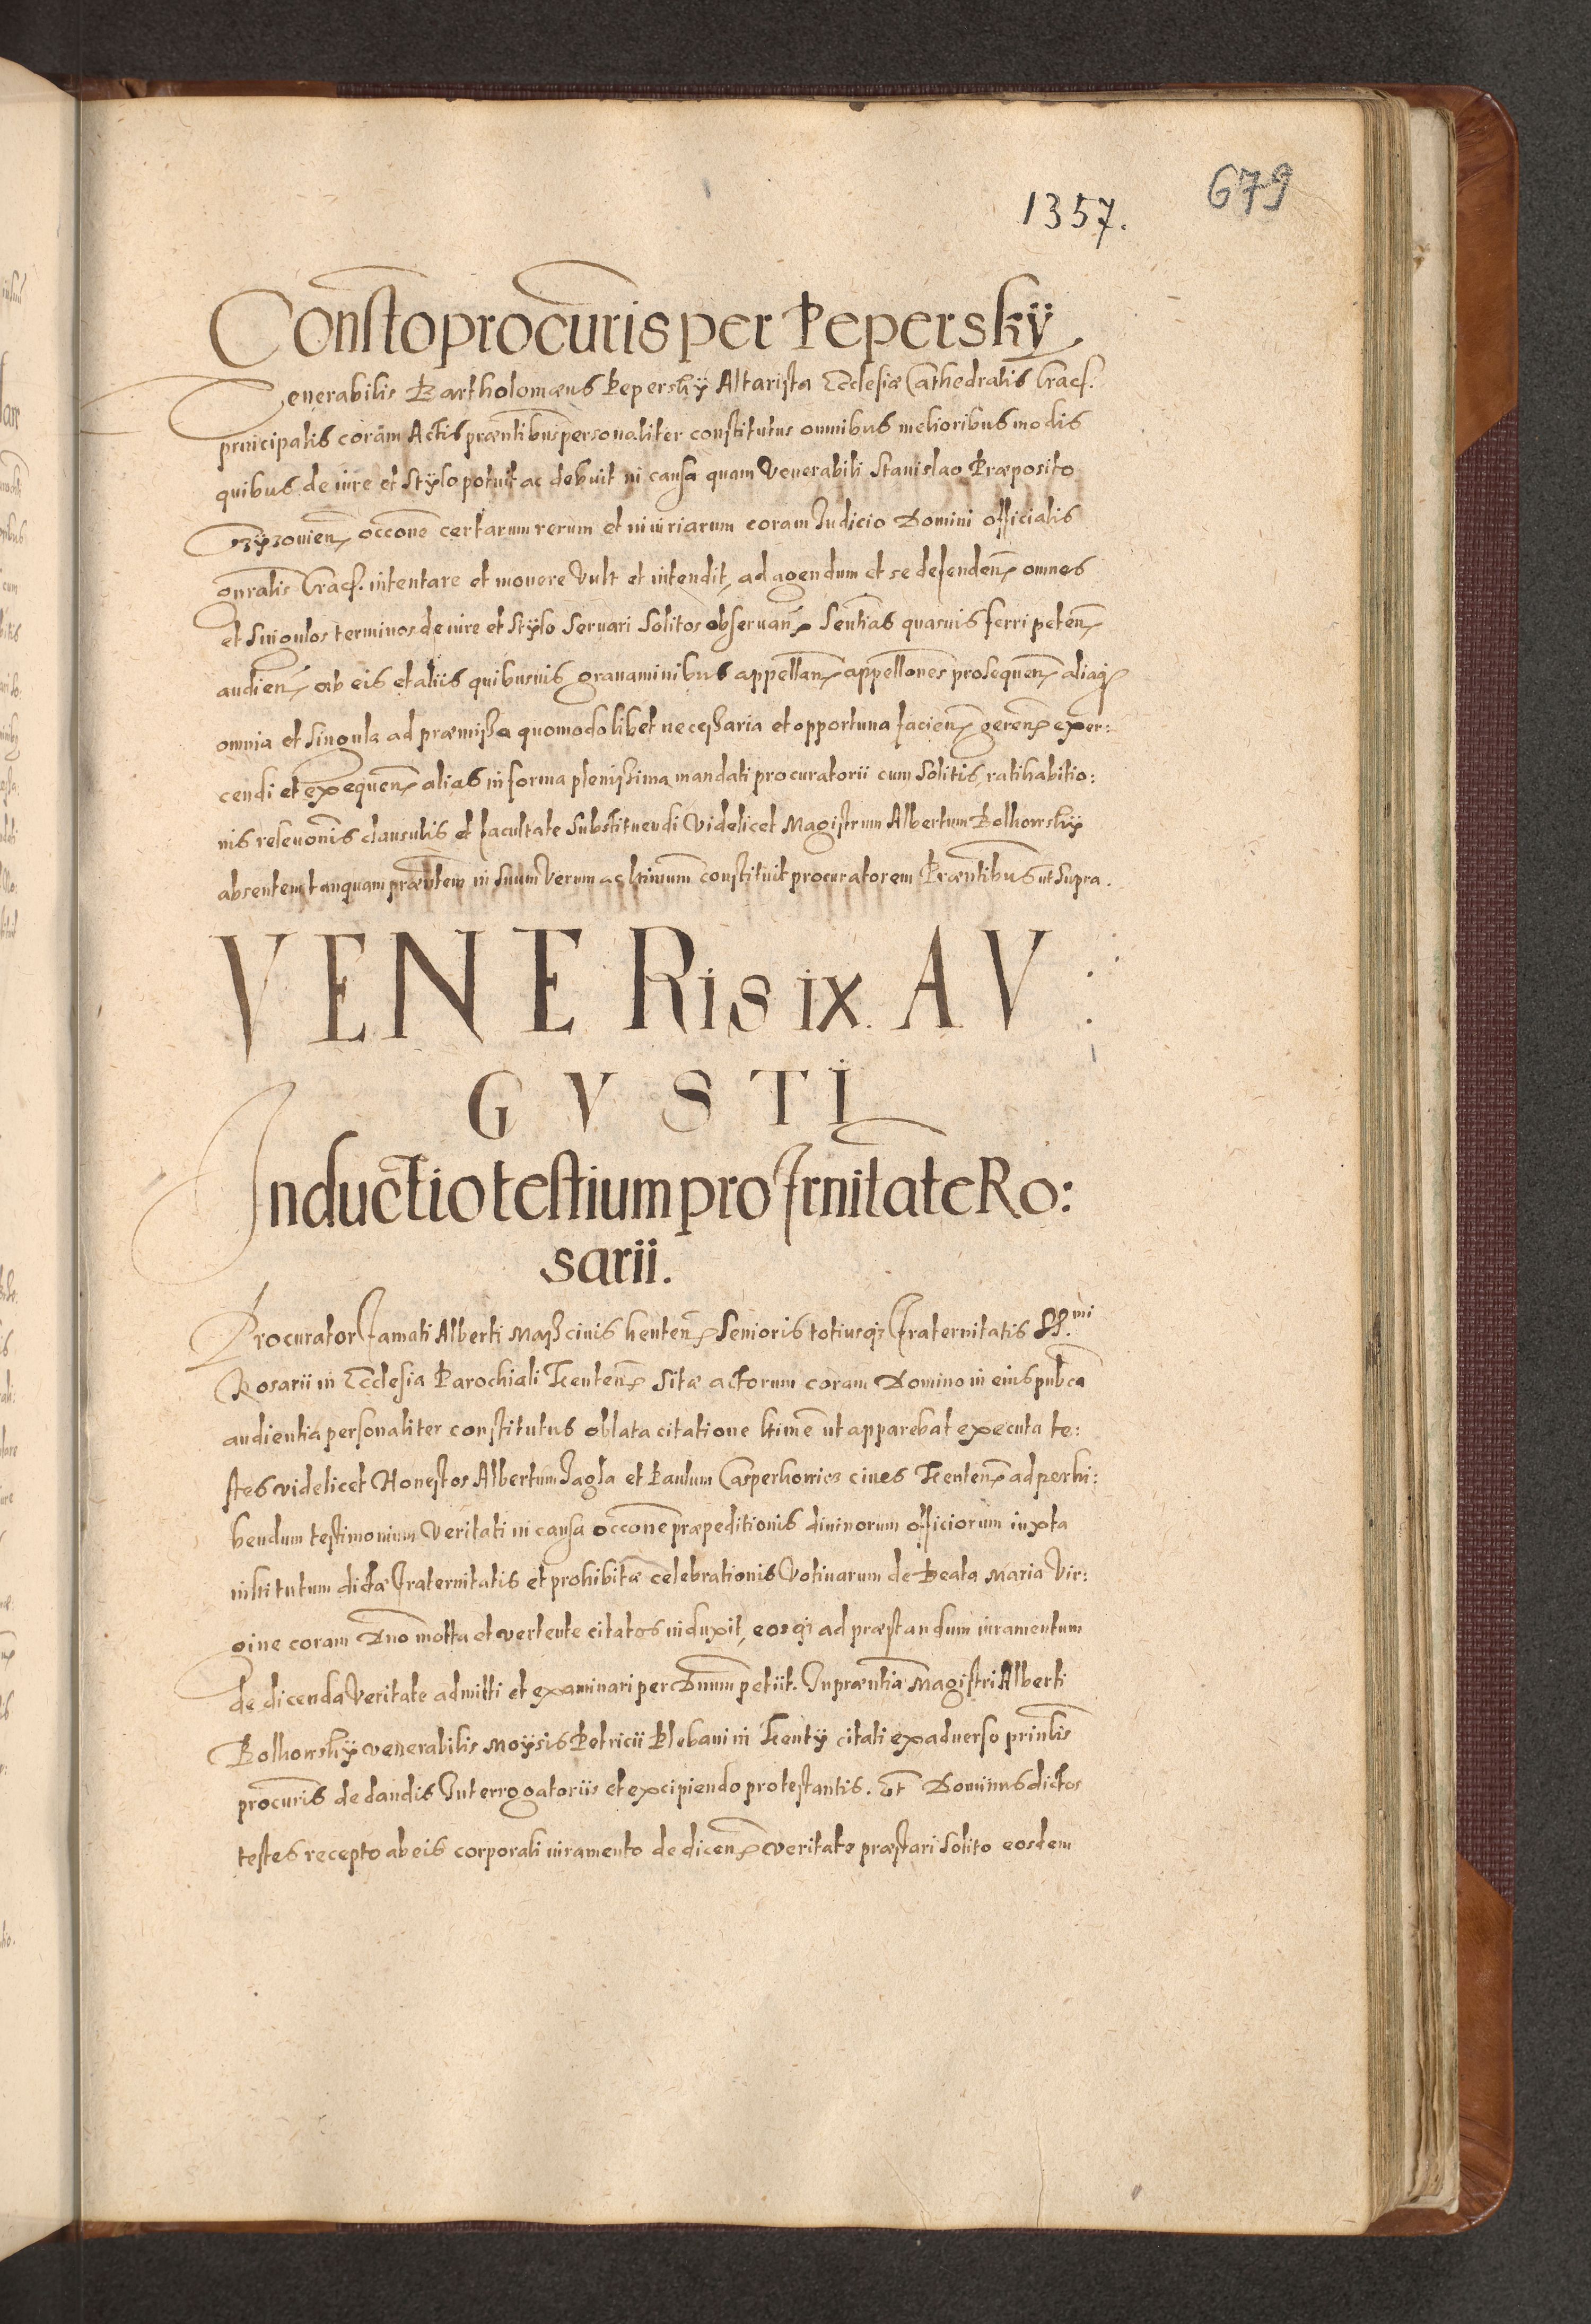 679
1357.
Constoprocuris per Pepersky
Venerabilis Bartholomæus Pepersky Altarista Ecclesiæ Cathedralis Crac̃.
principalis coram Actis præntibus personaliter constitutus omnibus melioribus modis
quibus de iure et Stylo potuit ac debuit in causa quam Venerabili Stanislao Præposito
occone certarum rerum et iniuriarum coram Iudicio Domini officialis
gnralis Crac̃. intentare et movere Vult et intendit, ad agendum et se defenden̄ omnes
et singulos terminos de iure et Stylo Servari Solitos observan̄ Sentias quasuis ferri peten̄
audien̄ ab eis et aliis quibusuis gravaminibus appellan̄ appellones prosequen̄ aliaq̃
omnia et singula ad præmissa quomodolibet necessaria et opportuna facien̄ geren̄ exer:
cendi et exequen̄ alias in forma plenissima mandati procuratorii cum Solitis, ratihabitio:
nis relevonis clausulis et facultate Substituendi Videlicet Magistrum Albertum Bolhowsky
absentem tanquam præntem in Suum Verum ac ltimum constituit procuratorem Præntibus ut Supra.
VENERis ix. AV:
GVSTI
Inductio testium pro frnitate Ro:
sarii.
Procurator famati Alberti Mass civis kenten̄ Senioris totiusq̃ fraternitatis SS.mi
Rosarii in Ecclesia Parochiali Kenten̄ Sitæ actorum coram Domino in eius pubca
audientia personaliter constitutus oblata citatione ltime ut apparebat executa te:
stes videlicet Honestos Albertum Jagla et Paulum Casperkowicz cives Kenten̄ ad perhi:
bendum testimonium Veritati in causa occone præpeditionis divinorum officiorum iuxta
institutum dictæ fraternitatis et prohibitæ celebrationis Votivarum de Beata Maria Vir:
gine coram Dno motta et vertente citatos induxit, eosq̃ ad præstandum iuramentum
de dicenda Veritate admitti et examinari per Dnum petiit. In præntia Magistri Alberti
Bolhowsky venerabilis Moysis Petricii Plebani in Kenty citati ex adverso prinlis
procuris de dandis Interrogatoriis et excipiendo protestantis. Et Dominus dictos
testes recepto ab eis corporali iuramento de dicen̄ veritate præstari Solito eosdem